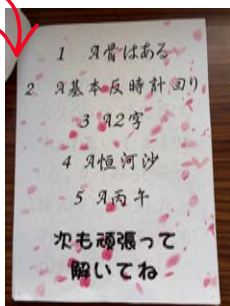 1 A骨はある
2 A基本反時計回り
3 A2字
4 A恒河沙
5 A丙午
次も頑張って
解いてね